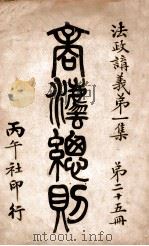 法政講義第一集　第二十五冊
商灋總則
丙午社印行
www.toopoo.com